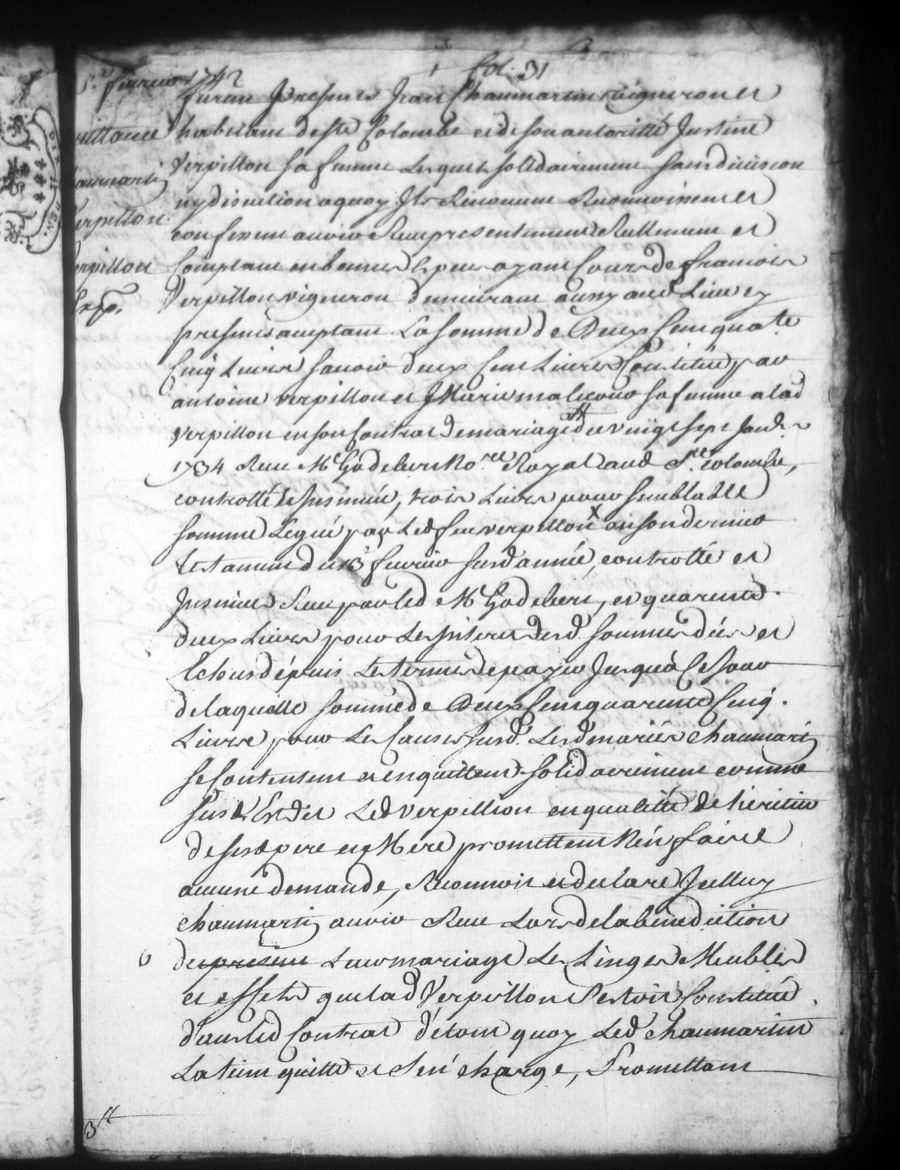 5.e fevrier 1742
fol. 31
quittance
chaumartin
verpillon
verpillon
Exp.
furan presens Jean Chaumartin vigneron et
habitant de Ste Colombe et de son autoritté Justine
Verpillon sa femme lesquels solidairement sans division
ny discution a quoy Ils Renoncent Reconnoissent et
confessent avoir Reçu presentement Reellement et
Comptant en bonnes espèces ayant Cours de francois
Verpillon vigneron demeurant aussy aud Lieu cy
present acceptant La somme de Deux Cent quarante
Cinq Livres savoir deux Cent Livres Constitué par
antoine verpillon et Marie malicour sa femme a lad
Verpillon en son Contrat de mariage du vingt sept Janv.
1734 Reçu Me Godebert No.re Royal aud Ste colombe,
controllé et Insinué, trois Livres pour semblable
somme Legué par Led feu verpillon en son dernier
testament du 13 fevrier susd année controllé et
Insinué Reçu par led Me Godebert, et quarente
deux Livres pour Les Interets desd. sommes dûes et
Echeus dépuis Les termes de payer Jusqu'à Ce Jour
de laquelle somme de Deux Cent quarente Cinq
Livres pour Les Causes susd. Lesd mariés Chaumartin
se Contentent et en quittent solidairement comme
sus Est dit Led verpillion en qualité de heritier
de sesd pere et Mere promettent N'en faire
aucune demande, Reconnoit et declare Icelluy
chaumartin avoir Reçu Lors de la bénédiction
de present Leur mariage Les Linges Meubles
et effets que lad Verpillon s'estoit Constitué
dans led Contrat de tout quoy Led chaumartin
La tient quitte et s'en charge, Promettant
3 ll